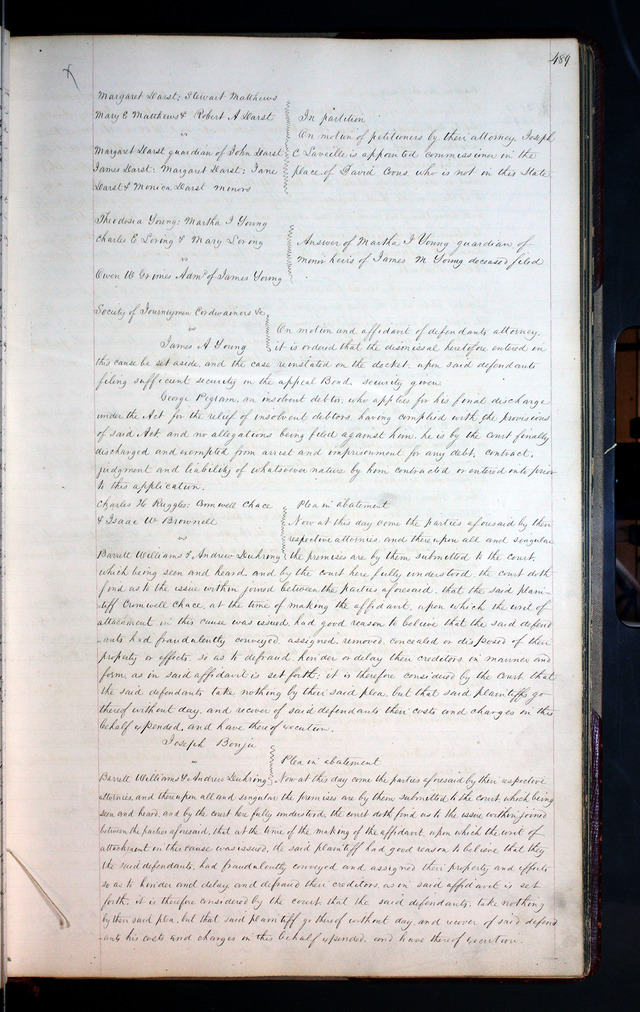 489
Margaret Darst: Stewart Matthews
Mary C Matthews & Robert A Darst
vs
Margaret Darst guardian of John Darst
James Darst: Margaret Darst: Jane
Darst & Monica Darst minors
In partition
On motion of petitioners by their attorney, Joseph
C Laveille is appointed commissioner in the
place of David Coons, who is not in this State
Theodosia Young: Martha I Young
Charles E Loring & Mary Loring
vs
Owen W Grimes Admr of James Young
Answer of Martha I Young guardian of
minor heirs of James M Young deceased filed
Society of Journeymen Cordwainers &c
vs
James A Young
On motion and affidavit of defendants attorney,
it is ordered that the dismissal heretofore entered in
this cause be set aside, and the case reinstated on the docket, upon said defendants
filing sufficient security in the appeal Bond, security given
George Pegram, an insolvent debtor, who applies for his final discharge
under the Act for the relief of insolvent debtors, having complied with the provisions
of said Act, and no allegations being filed against him, he is by the court finally
discharged and exempted from arrest and imprisonment for any debt, contract,
judgment and liability of whatsoever nature by him contracted or entered into prior
to this application.
Charles H Ruggles: Cromwell Chace
& Isaac W Brownell
vs
Barrett Williams & Andrew Duhring
Plea in abatement
Now at this day come the parties aforesaid by their
respective attornies, and thereupon all and singular
the premises are by them submitted to the court,
which being seen and heard, and by the court here fully understood, the court doth
find as to the issue within joined between the parties aforesaid, that the said plain-
tiff Cumwell Chace, at the time of making the affidavit, upon which the writ of
attachment in this cause was issued, had good reason to believe that the said defend
-ants had fraudulently conveyed, assigned, removed, concealed or disposed of their
property or effects, so as to defraud, hinder or delay their creditors, in manner and
form, as in said affidavit is set forth; it is therefore considered by the court that
the said defendants take nothing by their said plea, but that said plaintiffs go
thereof without day, and recover of said defendants their costs and charges in this
behalf expended, and have thereof execution.
Joseph Bonju
vs
Barrett Williams & Andrew Duhring
Plea in abatement
Now at this day come the parties aforesaid by their respective
attornies, and thereupon all and singular the premises are by them submitted to the court, which being
seen and heard, and by the court here fully understood, the court doth find as to the issue within joined
between the parties aforesaid, that at the time of the making of the affidavit, upon which the writ of
attachment in this cause was issued, the said plaintiff had good reason to believe that they
the said defendants, had fraudulently conveyed and assigned their property and effects
so as to hinder and delay and defraud their creditors, as in said affidavit is set
forth, it is therefore considered by the court that the said defendants, take nothing
by their said plea, but that said plaintiff go thereof without day, and recover of said defend
-ants his costs and charges in this behalf expended, and have thereof execution.